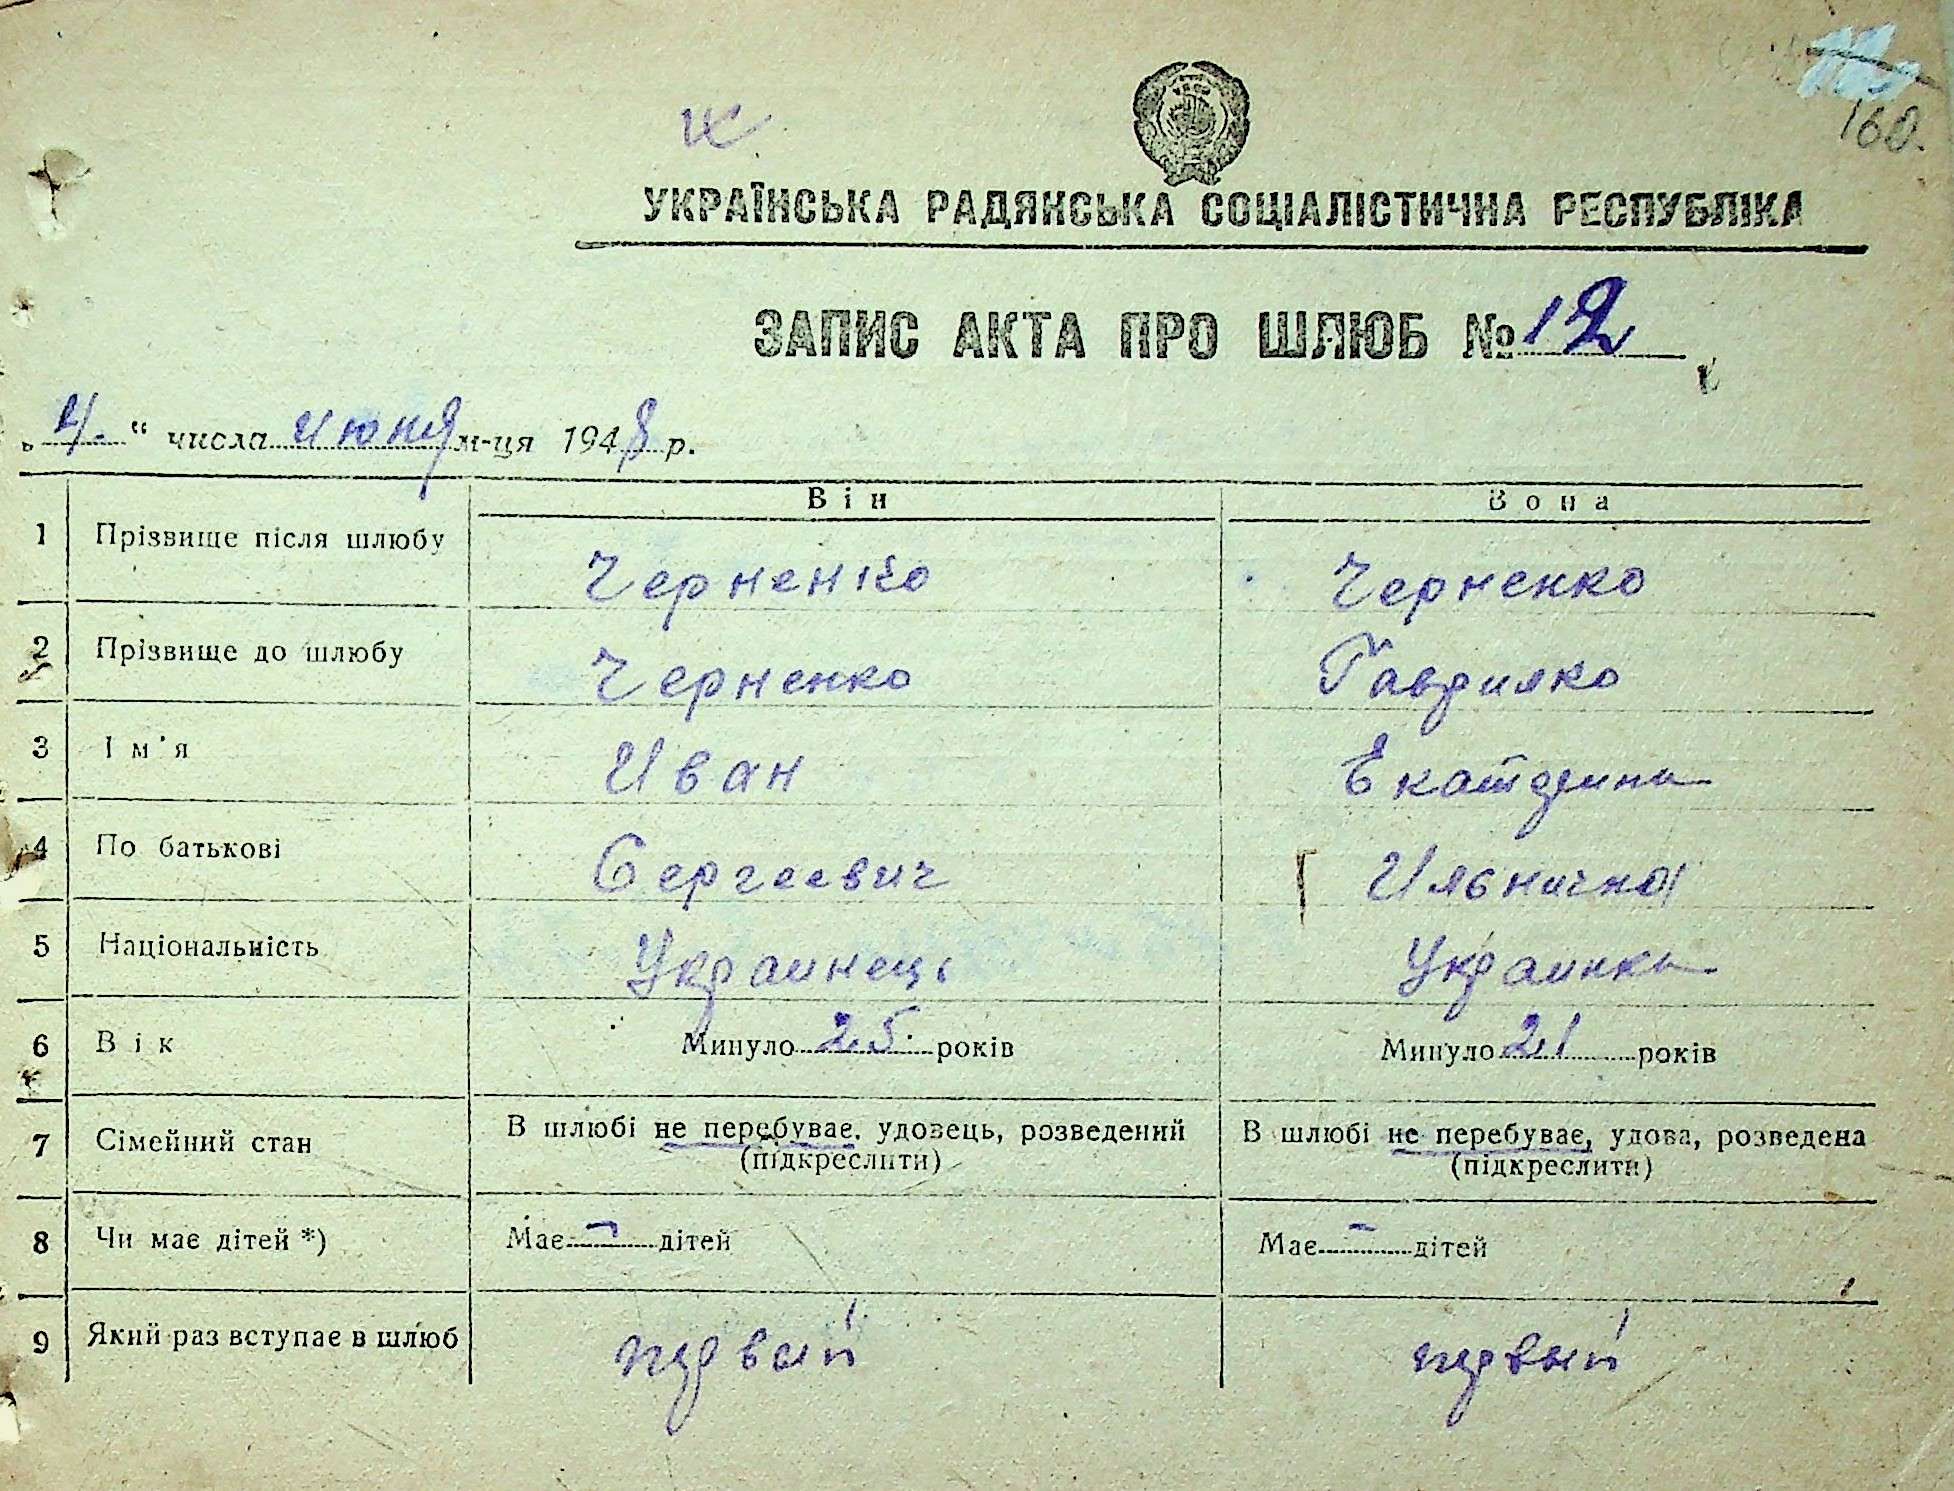 160.
УКРАЇНСЬКА РАДЯНСЬКА СОЦІАЛІСТИЧНА РЕСПУБЛІКА
ЗАПИС АКТА ПРО ШЛЮБ № 12
„ 4. “ числа июня м-ця 1948 р.
Він Вона
1 Прізвище після шлюбу Черненко Черненко
2 Прізвище до шлюбу Черненко Гаврилко
3 Ім'я Иван Екатерина
4 По батькові Сергеевич Ильнична
5 Національність Украинець Украинка
6 Вік Минуло 25. років Минуло 21 років
7 Сімейний стан В шлюбі не перебуває, удовець, розведений (підкреслити) В шлюбі не перебуває, удова, розведена (підкреслити)
8 Чи має дітей *) Має – дітей Має – дітей
9 Який раз вступає в шлюб первый первый